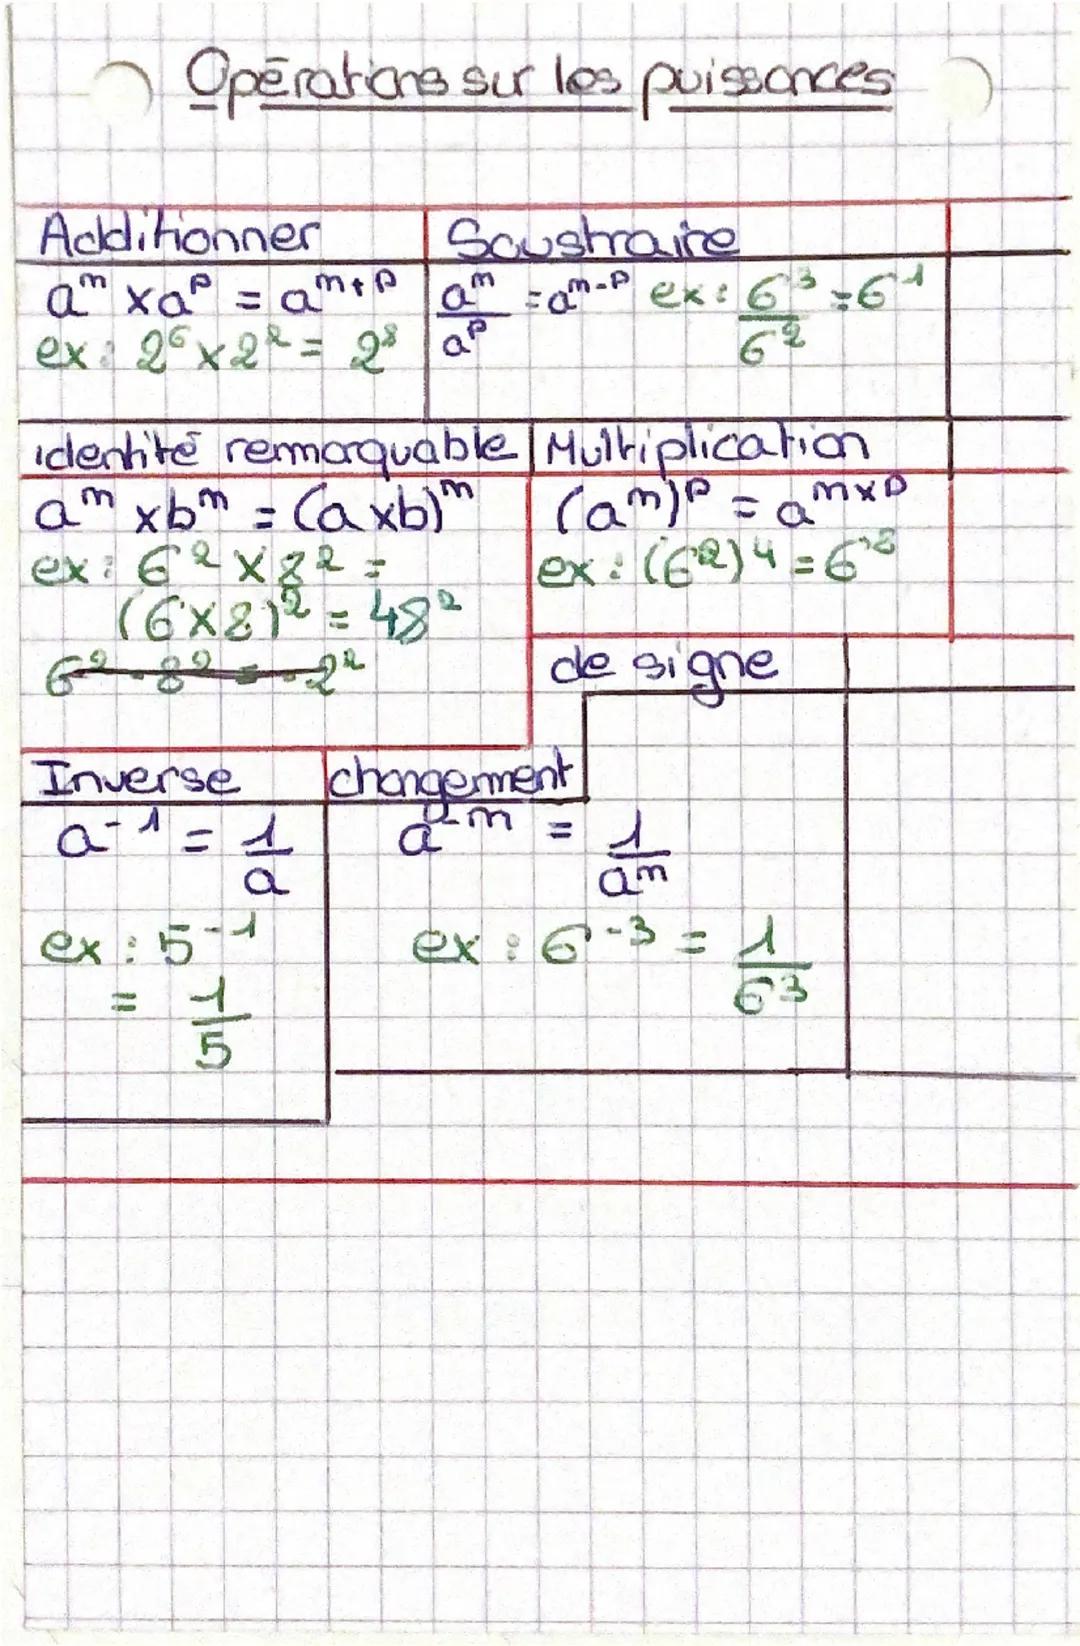 Opérations sur les puissances
Additionner
a^m x a^p = a^m+p
ex : 2^6 x 2^2 = 2^8
Soustraire
a^m/a^p = a^m-p ex : 6^3/6^2 = 6^1
identité remarquable
a^m x b^m = (a x b)^m
ex : 6^2 x 8^2 =
(6 x 8)^2 = 48^2
6^2 - 8^2 = -2^2
Multiplication
(a^m)^p = a^mxp
ex : (6^2)^4 = 6^8
Inverse
a^-1 = 1/a
ex : 5^-1
= 1/5
changement
de signe
a^-m = 1/a^m
ex : 6^-3 = 1/6^3